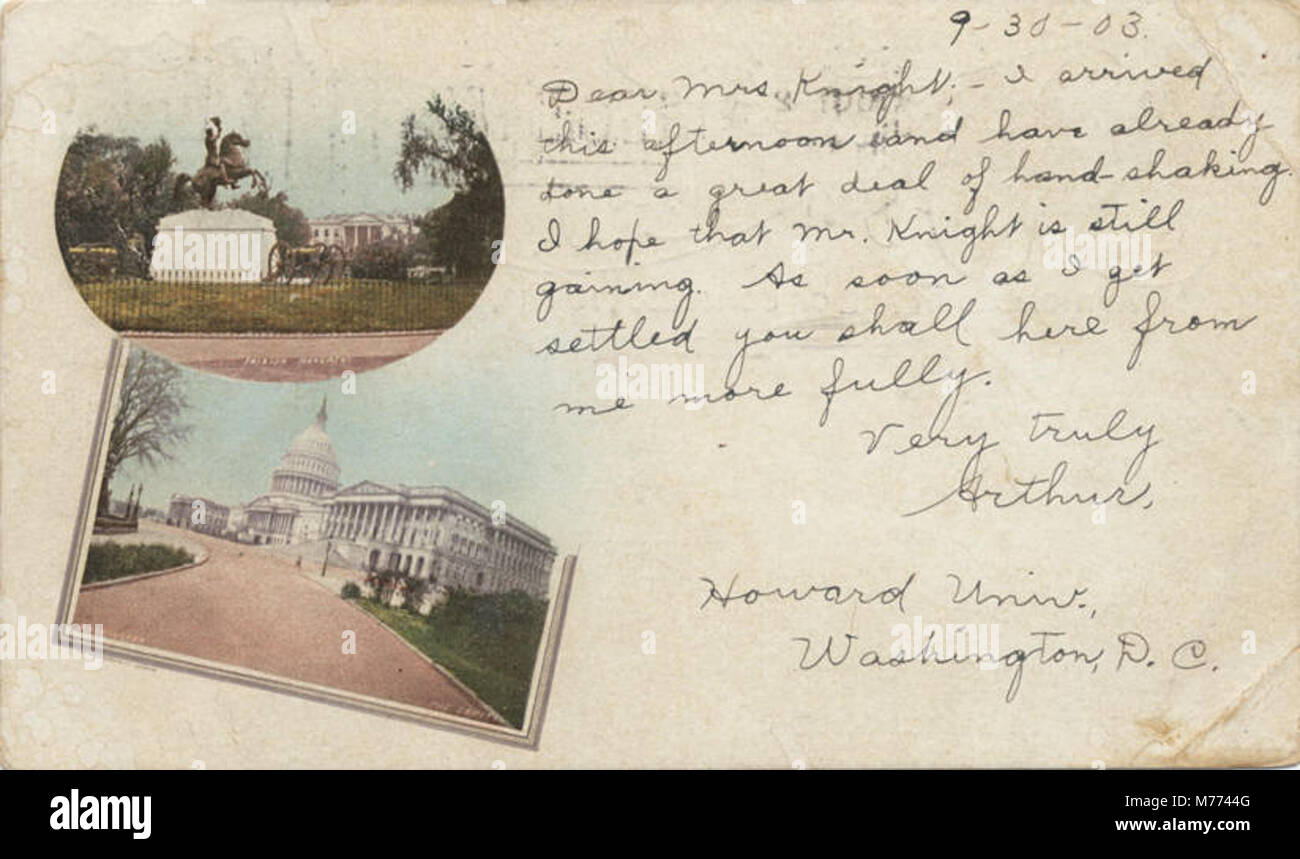 9-30-03.
Dear Mrs. Knight,- I arrived
this afternoon and have already
done a great deal of hand-shaking.
I hope that Mr. Knight is still
gaining. As soon as I get
settled you shall here from
me more fully.
Very truly
Arthur.
Howard Univ.,
Washington, D. C.
alamy
alamy
Image ID: M7744G
www.alamy.com